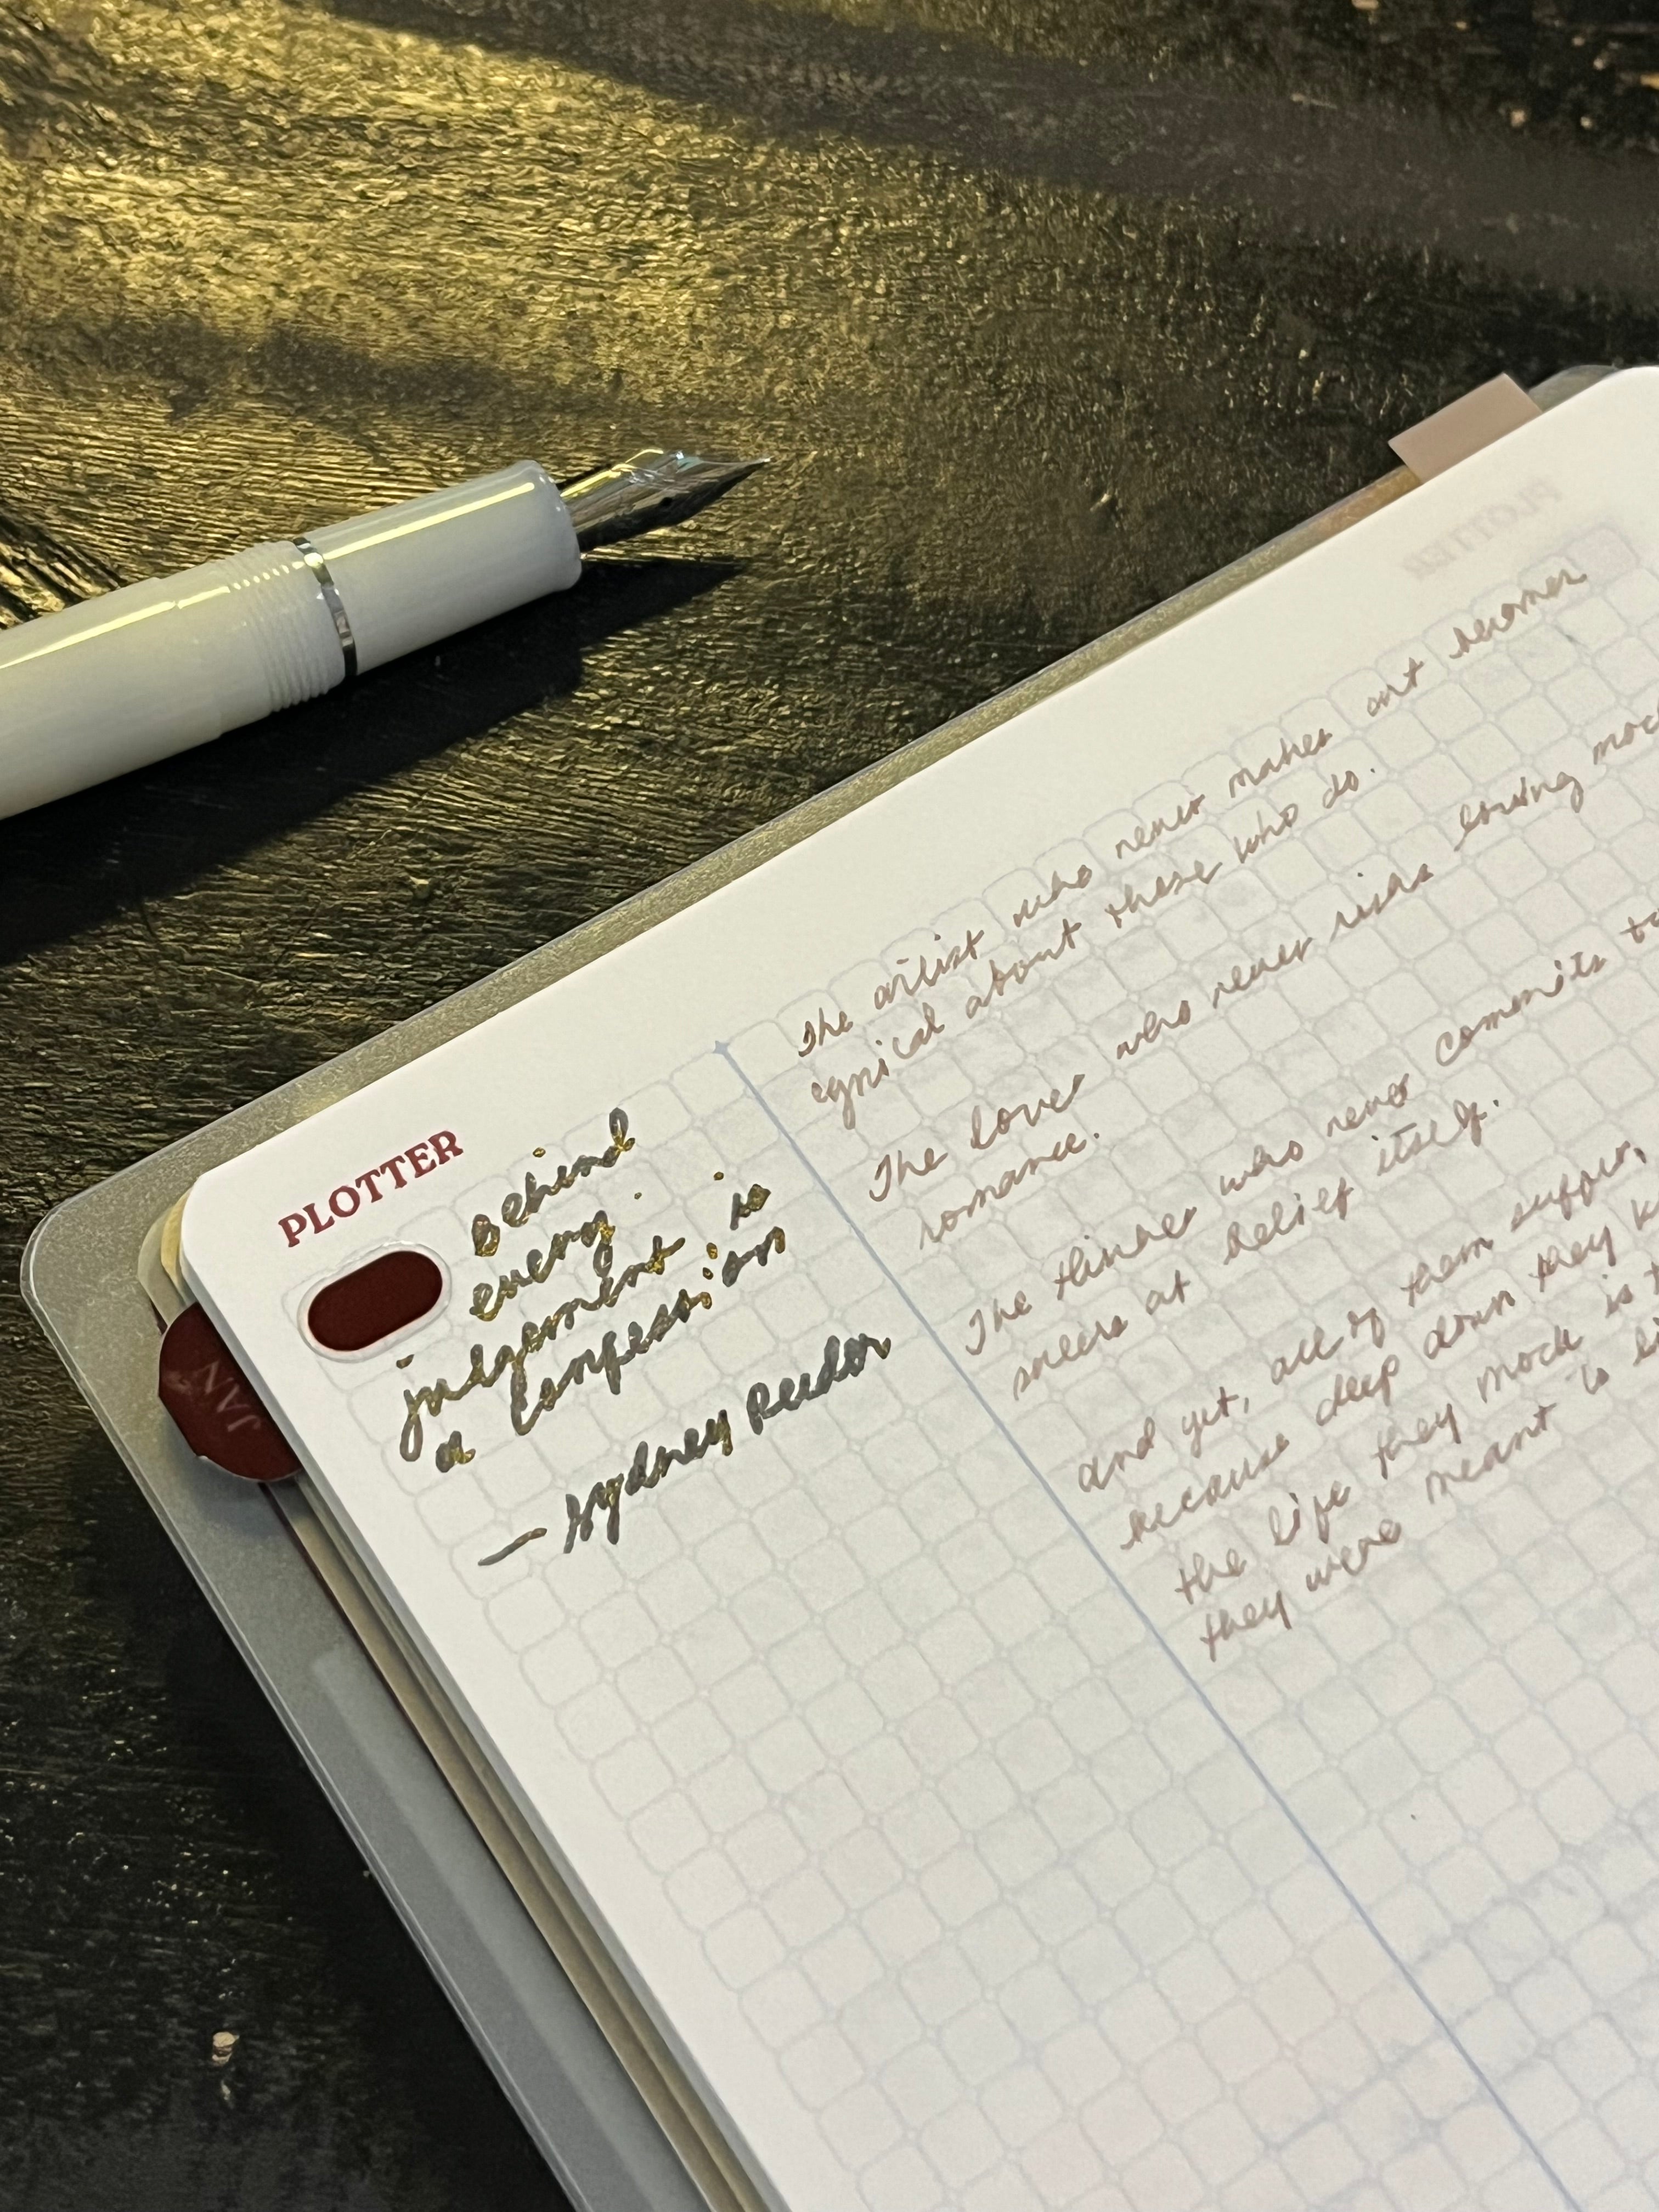 PLOTTER
PLOTTER
JAN
Behind
every
judgement is
a confession
— Sydney Reedor
The artist who never makes art becomes
cynical about those who do.
The lover who never risks loving
romance.
The thinker who never commits to
sneers at belief itself.
and yet, all of them suffer,
because deep down they
the life they mock is
they were meant to